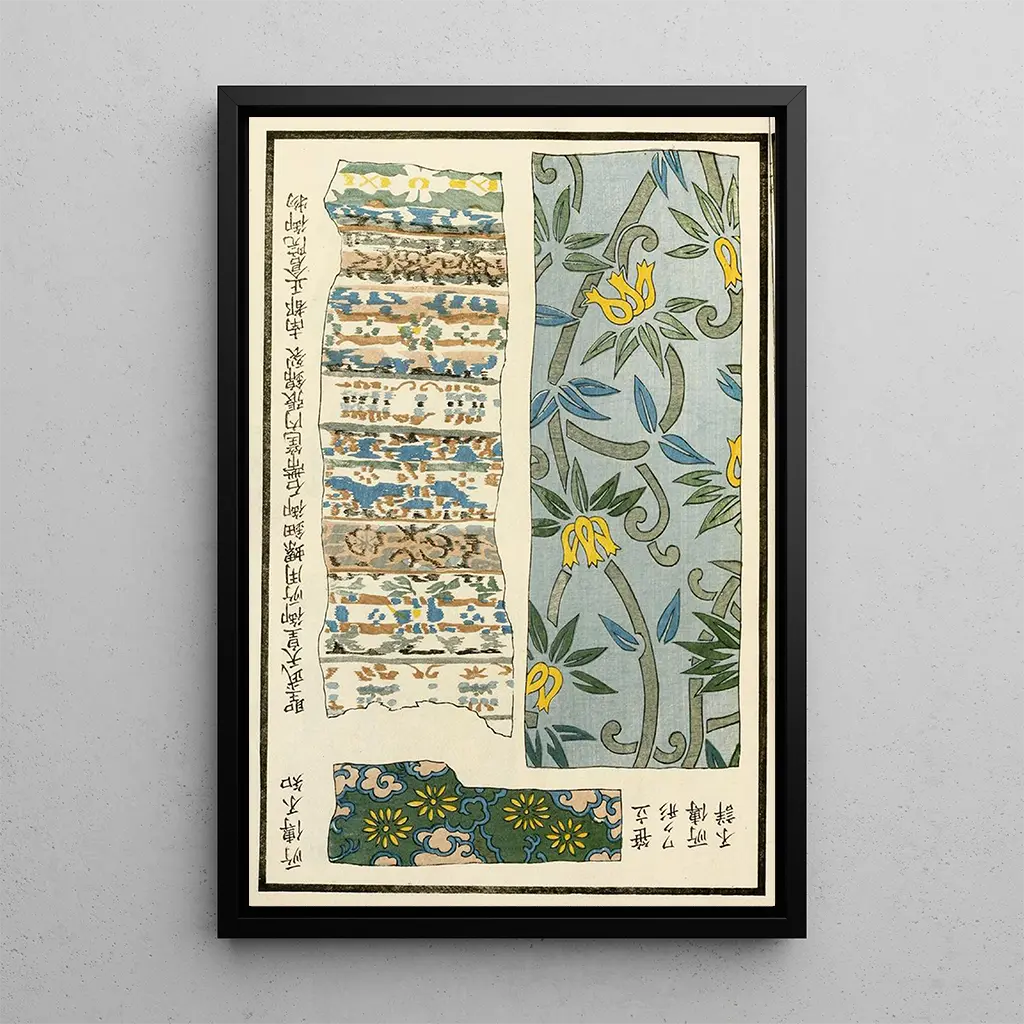 所傳不知
聖武天皇御所用螺鈿御石帯筐内張錦裂 南都正倉院御物
笹立
ワク形
所傳
不詳